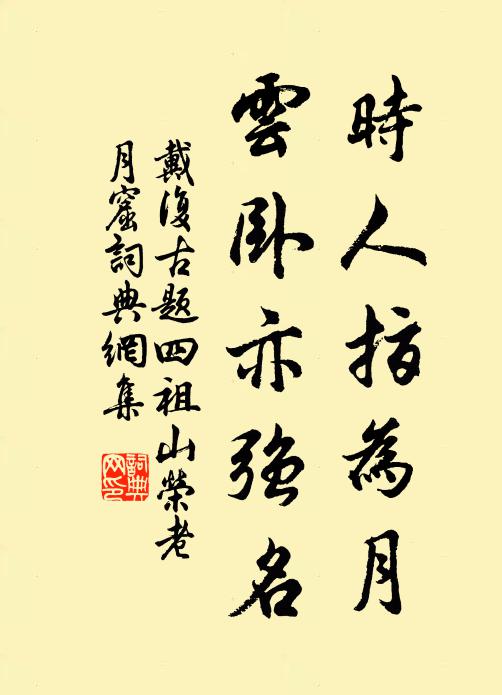 時人指為月
雲臥亦強名
戴復古題四祖山榮老
月窟詞典網集
詞典网印